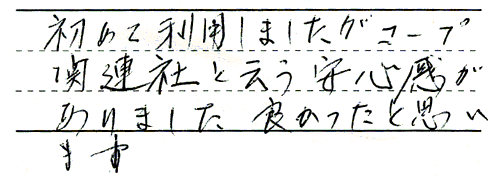 初めて利用しましたがコープ
関連社と云う安心感が
ありました 良かったと思い
ます